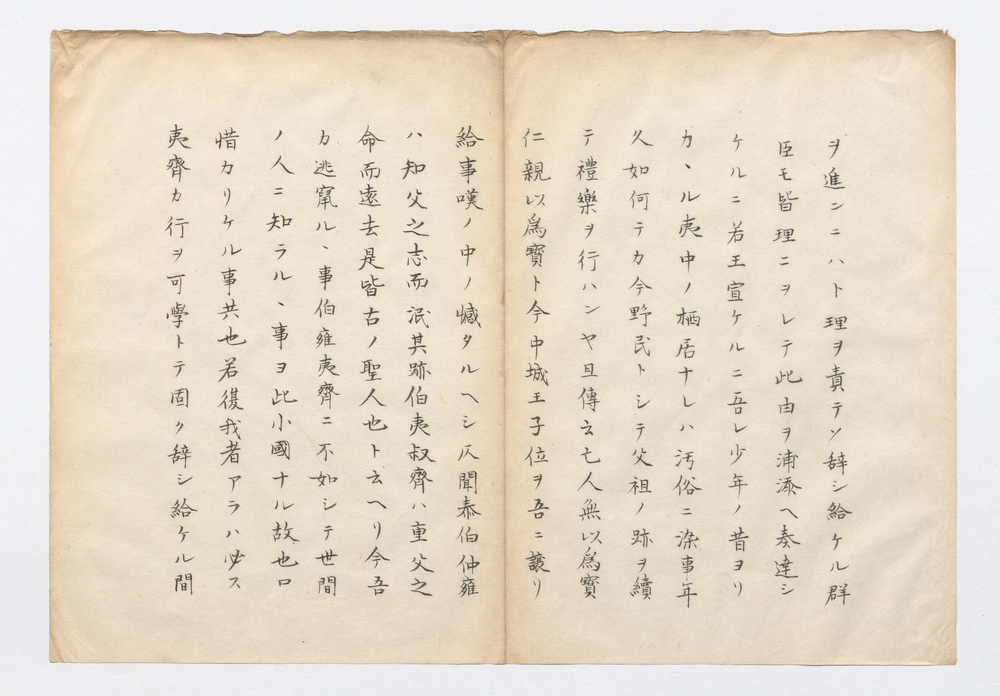 ヲ進ンニハト理ヲ責テソ辞シ給ケル群
臣モ皆理ニヲレテ此由ヲ浦添ヘ奏達シ
ケルニ若王宣ケルニ吾レ少年ノ昔ヨリ
カヽル夷中ノ栖居ナレハ汚俗ニ染事年
久如何テカ今野民トシテ父祖ノ跡ヲ續
テ禮樂ヲ行ハンヤ且傳云亡人無以爲寳
仁親以爲寳ト今中城王子位ヲ吾ニ譲リ
給事嘆ノ中ノ憾タルヘシ仄聞泰伯仲雍
ハ知父之志而泯其跡伯夷叔齊ハ重父之
命而遠去是皆古ノ聖人也ト云ヘリ今吾
カ逃竄ルヽ事伯雍夷齊ニ不如シテ世間
ノ人ニ知ラルヽ事ヨ此小國ナル故也口
惜カリケル事共也若復我者アラハ必ス
夷齊カ行ヲ可學トテ固ク辞シ給ケル間